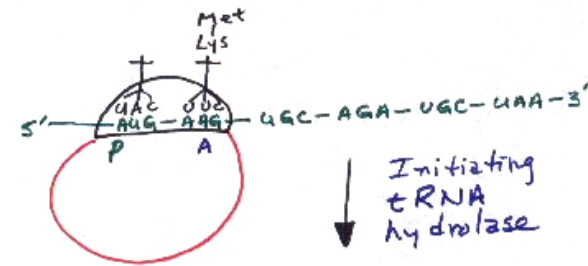 Met
Lys
UAC UUC
5'— AUG — AAG — UGC — AGA — UGC — UAA — 3'
P A
Initiating
tRNA
hydrolase